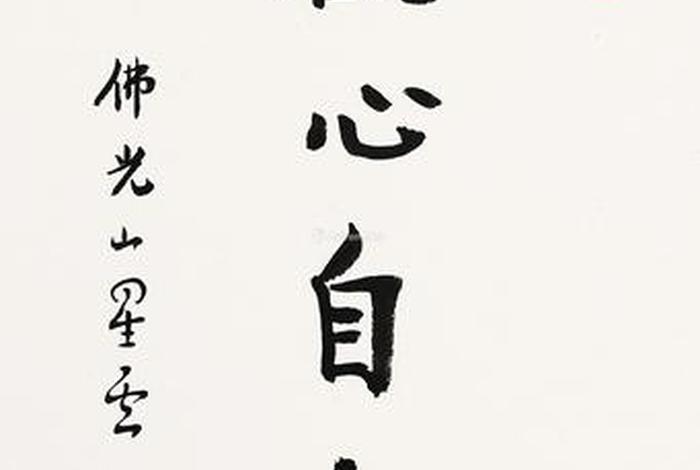 心自
佛光山星云